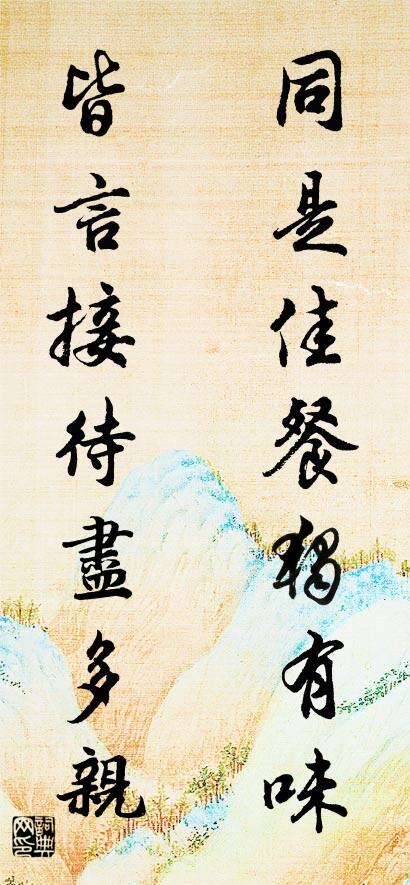 同是佳餐獨有味
皆言接待盡多親
詞典网印